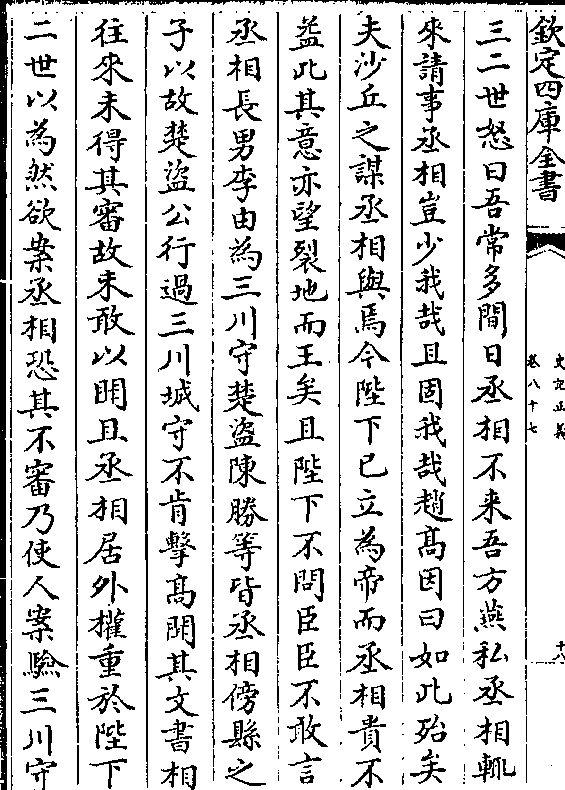 欽定四庫全書
史記正義
卷八十七
十八
三二世怒曰吾常多間日丞相不来吾方燕私丞相輒
來請事丞相豈少我哉且固我哉趙髙因曰如此殆矣
夫沙丘之謀丞相與焉今陛下已立為帝而丞相貴不
益此其意亦望裂地而王矣且陛下不問臣臣不敢言
丞相長男李由為三川守楚盜陳勝等皆丞相傍縣之
子以故楚盜公行過三川城守不肯擊髙聞其文書相
往來未得其審故未敢以聞且丞相居外權重於陛下
二世以為然欲案丞相恐其不審乃使人案驗三川守